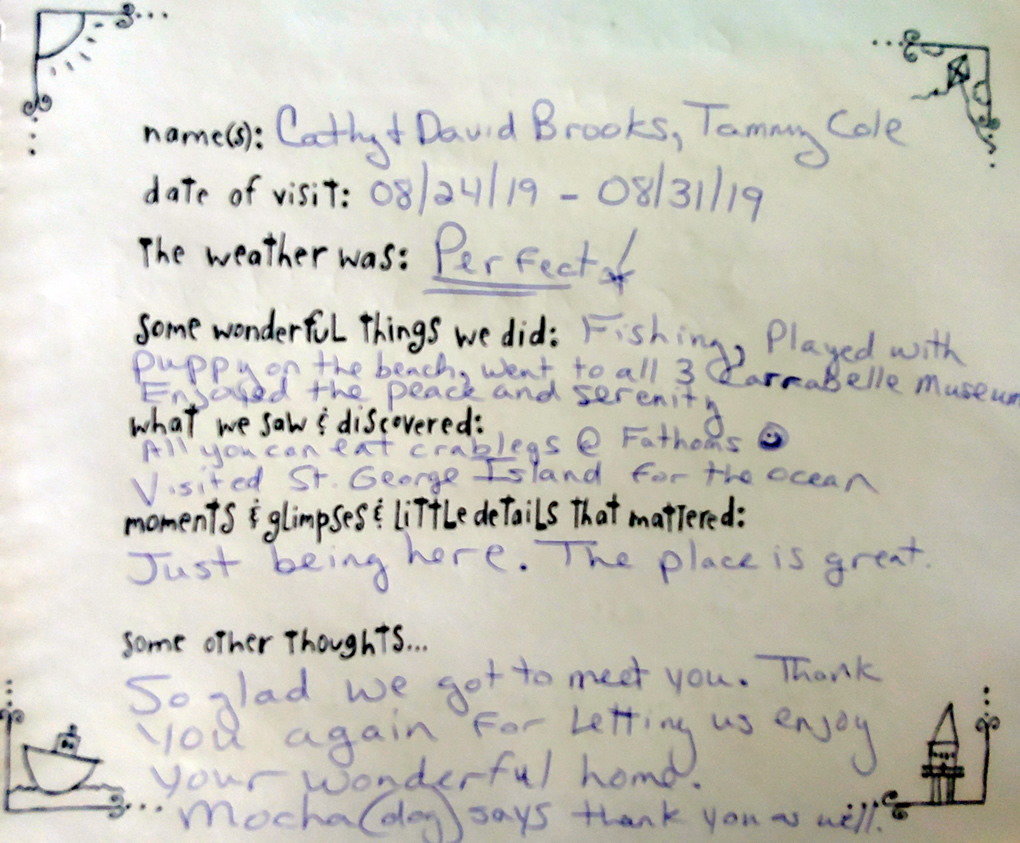 name(s): Cathy & David Brooks, Tammy Cole
date of visit: 08/24/19 - 08/31/19
The weather was: Perfect!
some wonderful things we did: Fishing, Played with
puppy on the beach, went to all 3 Carrabelle museum
Enjoyed the peace and serenity
what we saw & discovered:
All you can eat crablegs @ Fathoms ☻
Visited St. George Island for the ocean
moments & glimpses & little details that mattered:
Just being here. The place is great.
some other thoughts...
So glad we got to meet you. Thank
you again for letting us enjoy
your wonderful home.
Mocha (dog) says thank you as well.